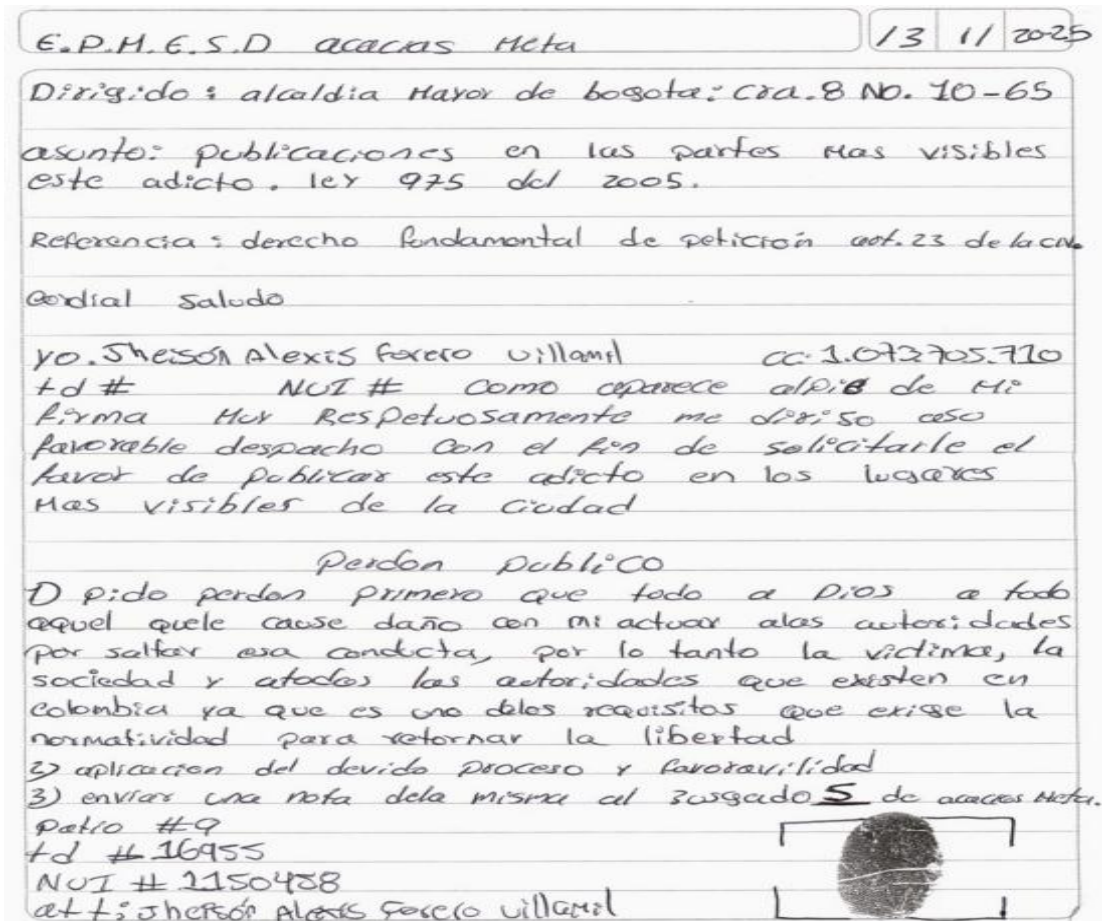 E.P.M.E.S.D acacias Meta 13 11 2025
Dirigido: alcaldia Mayor de bogota: Cra. 8 No. 10-65
asunto: publicaciones en las partes Mas visibles
este adicto. ley 975 del 2005.
Referencia: derecho fundamental de petición art. 23 de la CN.
Cordial saludo
yo. Jheisón Alexis forero villamil CC. 1.073705.710
td # NUI # Como aparece alpie de Mi
firma Muy Respetuosamente me dirijo aso
favorable despacho Con el fin de solicitarle el
favor de publicar este adicto en los lugares
Mas visibles de la Ciudad
Perdon publico
1) pido perdon primero que todo a Dios a todo
aquel quele cause daño con mi actuar alas autoridades
por saltar esa conducta, por lo tanto la victima, la
sociedad y atodas las autoridades que existen en
colombia ya que es uno delos requisitos que exige la
normatividad para retornar la libertad
2) aplicacion del devido proceso y favoravilidad
3) enviar una nota dela misma al Jusgado 5 de acacias Meta.
patio #9
td # 16955
NUI # 1150488
att: Jheisón Alexis forero villamil